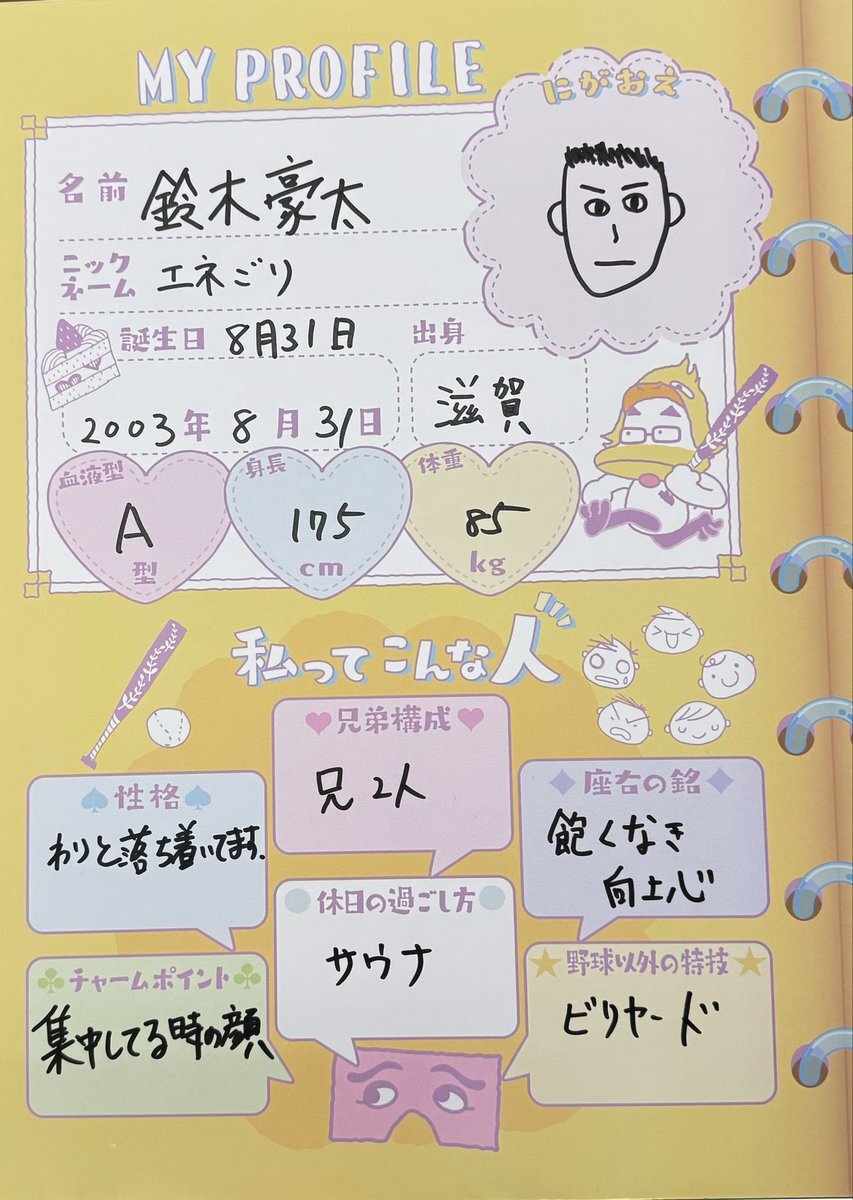 MY PROFILE
にがおえ
名前 鈴木豪太
ニックネーム エネごり
誕生日 8月31日
2003年 8月 31日
出身
滋賀
血液型
A
型
身長
175
cm
体重
85
kg
私ってこんな人
兄弟構成
兄2人
性格
わりと落ち着いてます.
座右の銘
飽くなき
向上心
休日の過ごし方
サウナ
チャームポイント
集中してる時の顔
野球以外の特技
ビリヤード